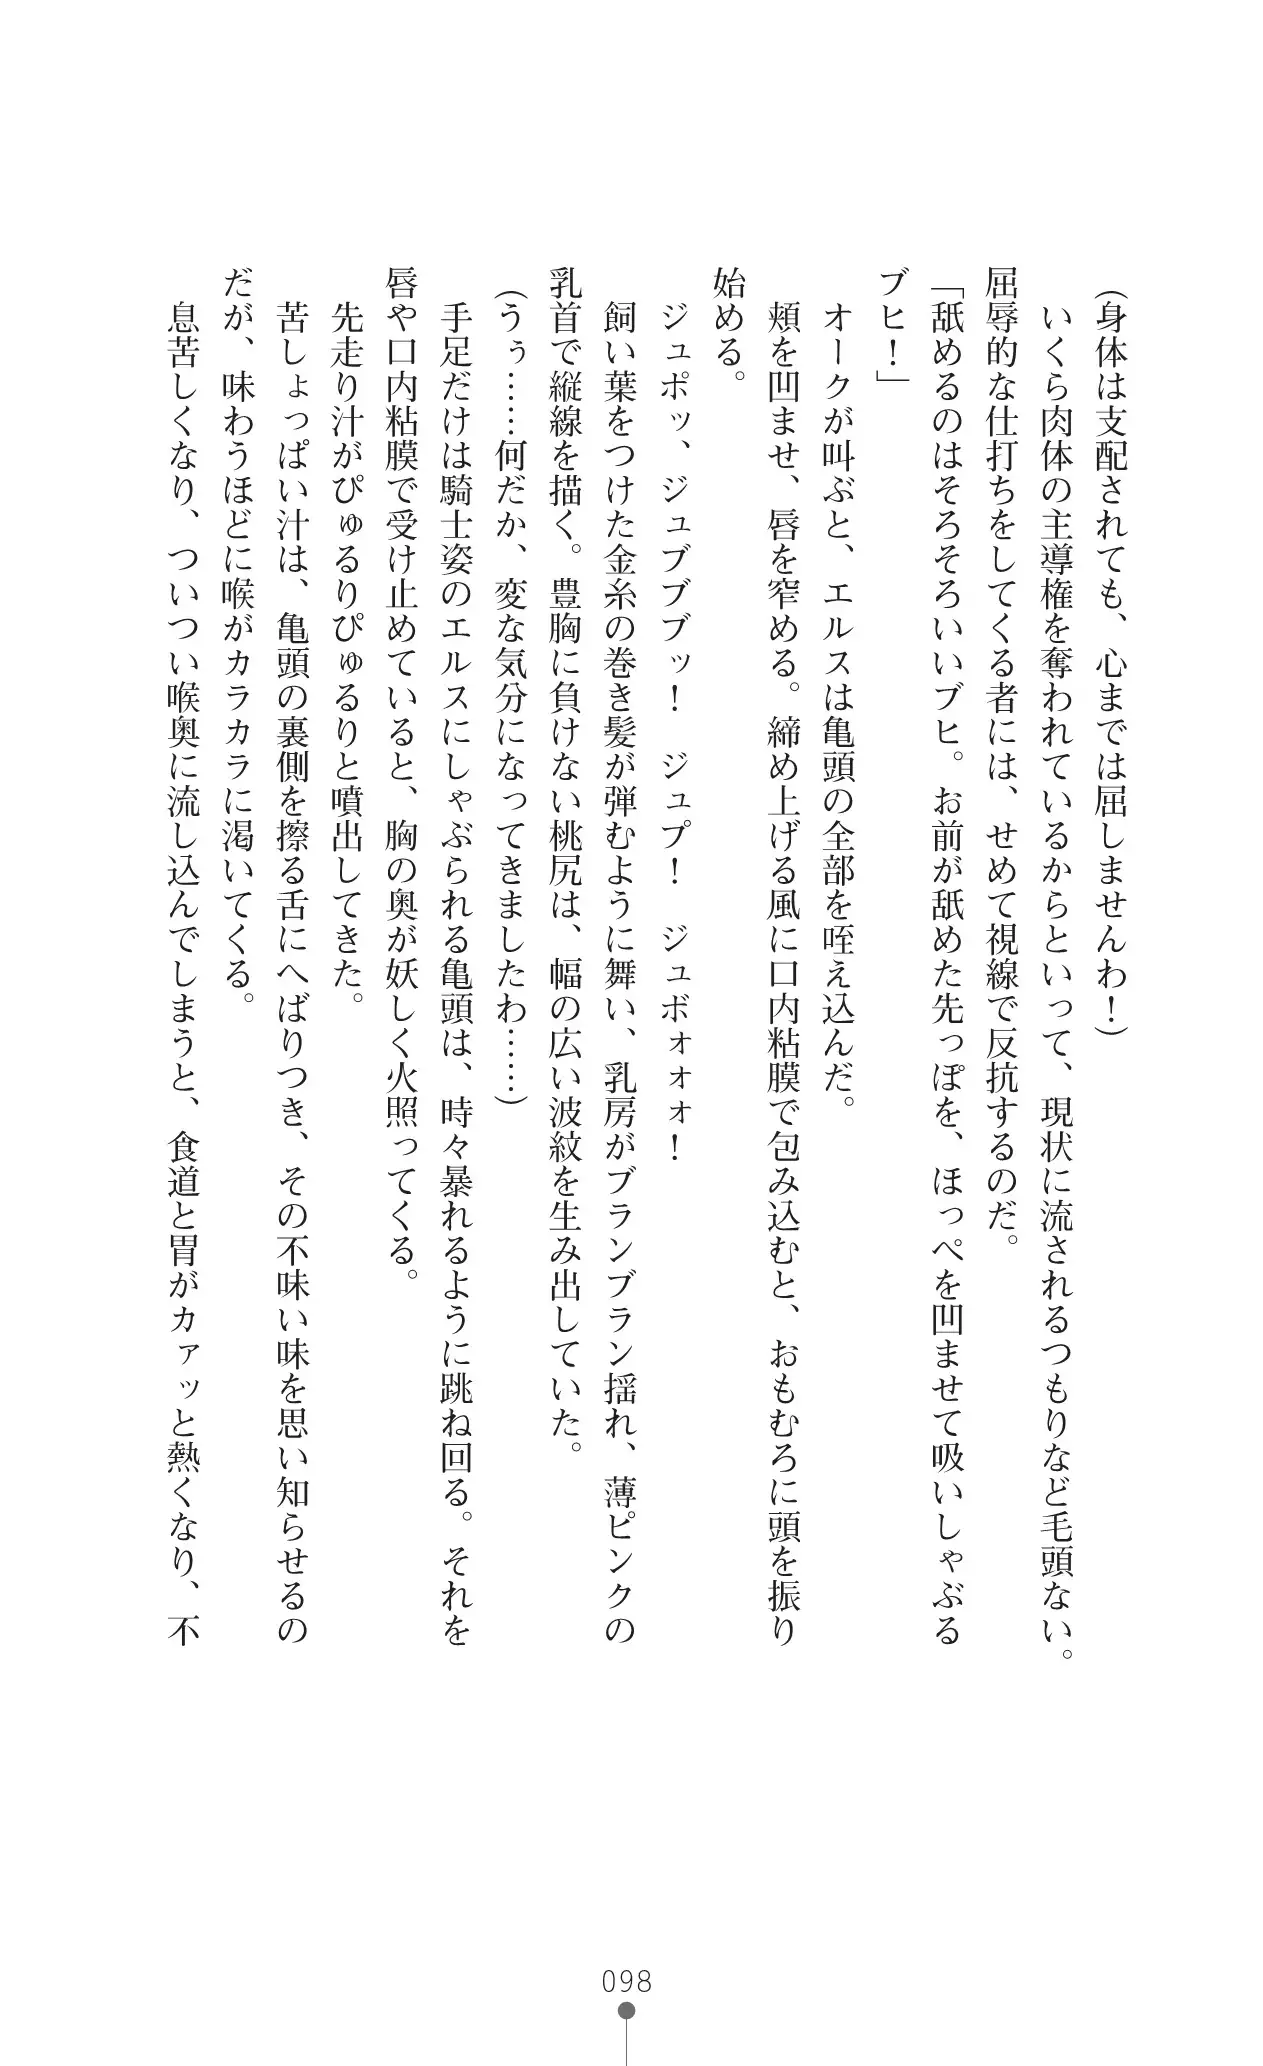 (身体は支配されても、心までは屈しませんわ!)
いくら肉体の主導権を奪われているからといって、現状に流されるつもりなど毛頭ない。
屈辱的な仕打ちをしてくる者には、せめて視線で反抗するのだ。
「舐めるのはそろそろいいブヒ。お前が舐めた先っぽを、ほっぺを凹ませて吸いしゃぶる
ブヒ!」
オークが叫ぶと、エルスは亀頭の全部を咥え込んだ。
頬を凹ませ、唇を窄める。締め上げる風に口内粘膜で包み込むと、おもむろに頭を振り
始める。
ジュポッ、ジュブブブッ! ジュプ! ジュボォォォ!
飼い葉をつけた金糸の巻き髪が弾むように舞い、乳房がブランブラン揺れ、薄ピンクの
乳首で縦線を描く。豊胸に負けない桃尻は、幅の広い波紋を生み出していた。
(うぅ……何だか、変な気分になってきましたわ……)
手足だけは騎士姿のエルスにしゃぶられる亀頭は、時々暴れるように跳ね回る。それを
唇や口内粘膜で受け止めていると、胸の奥が妖しく火照ってくる。
先走り汁がぴゅるりぴゅるりと噴出してきた。
苦しょっぱい汁は、亀頭の裏側を擦る舌にへばりつき、その不味い味を思い知らせるの
だが、味わうほどに喉がカラカラに渇いてくる。
息苦しくなり、ついつい喉奥に流し込んでしまうと、食道と胃がカァッと熱くなり、不
098